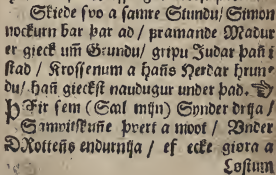 Skiede svo a samre Stundu/ Simon
nockurn bar þar ad / pramande Madur
er gieck um̄ Grundu/ gripu Judar þañ i
stad / Krossenum a hañs Herdar hrun
du/ hañ gieckst naudugur under þad.
ÞFir sem (Sæl mijn) Synder drija /
Samvitskuñe þvert a moot / Under
DRottens endurnija / ef ecke giøra a
Lostum